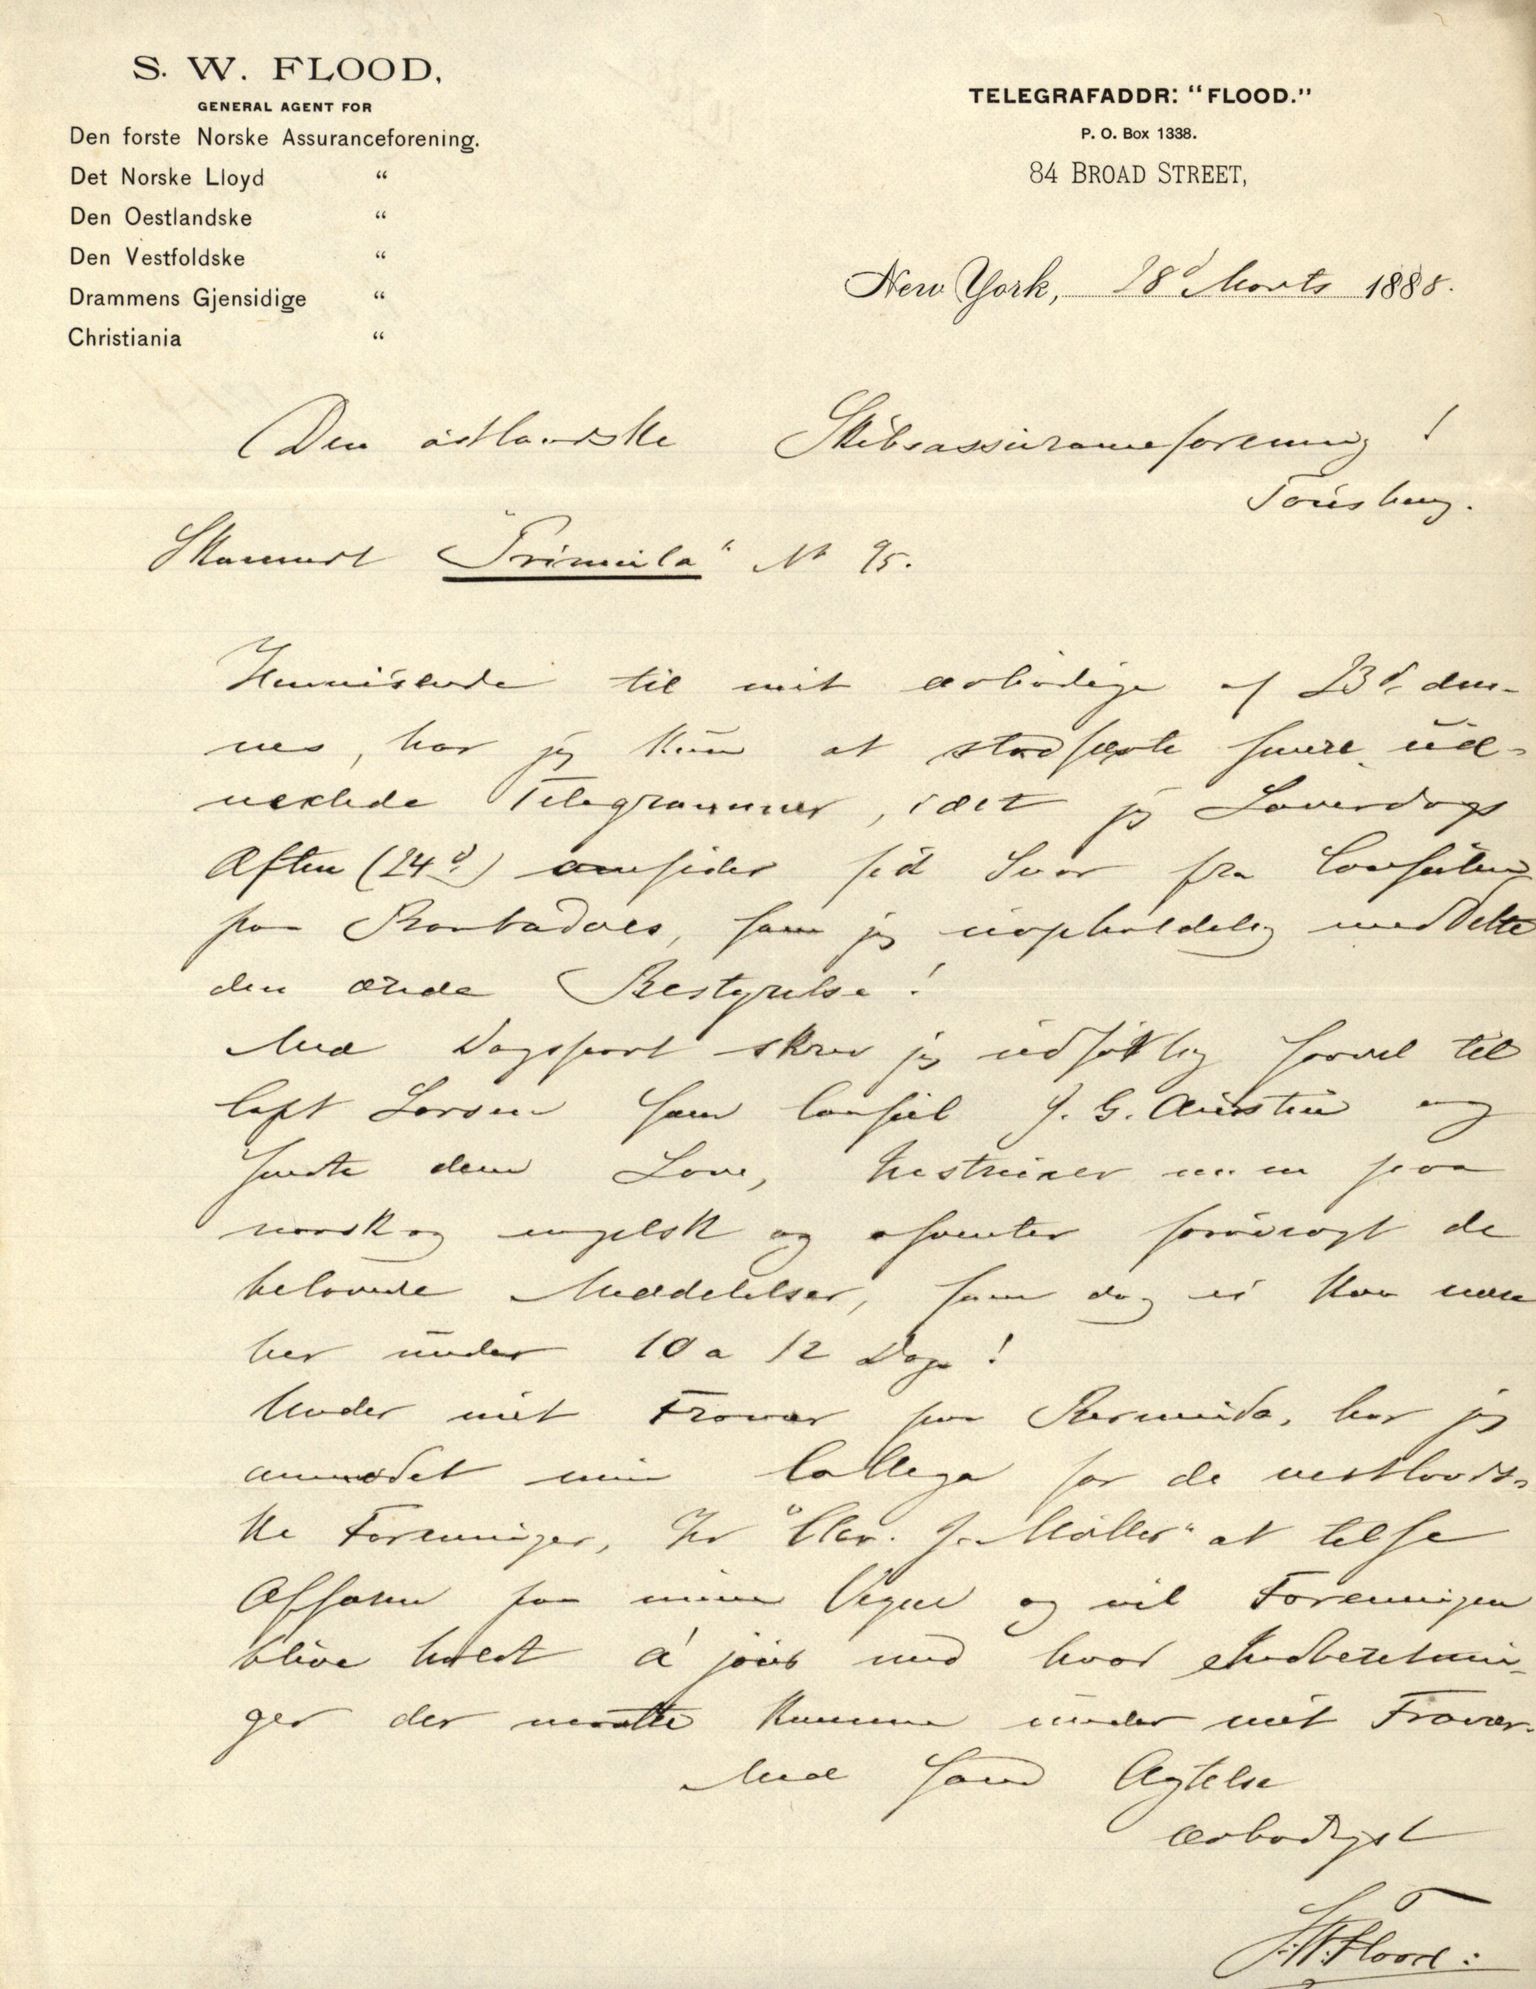 S. W. FLOOD,
GENERAL AGENT FOR
Den forste Norske Assuranceforening.
Det Norske Lloyd "
Den Oestlandske "
Den Vestfoldske "
Drammens Gjensidige "
Christiania "
TELEGRAFADDR: "FLOOD."
P. O. Box 1338.
84 BROAD STREET,
New York, 28d Marts 1888.
Den østlandske Skibsassuranceforening!
Tønsberg.
"Primula" No 95.
Henvisende til mit ærbødige af 23d den-
nes, har jeg kun at stadfæste senere ud-
vexlede Telegrammer, idet jeg Løverdags
Aften (24d) omsider fik Svar fra Consulen
paa Barbadoes, som jeg uopholdelig meddelte
den ærede Bestyrelse!
Med Dagspost skrev jeg udførlig saavel til
Capt Larsen som Consul J. G. Austin og
sendte dem Love, Instruxer m.m. paa
norsk og engelsk og afventer forøvrigt de
belovede Meddelelser, som dog ei kan være
her under 10 a 12 Dage!
Under mit Fravær paa Bermuda, har jeg
anmodet min Collega for de vestlands-
ke Foreninger, Hr "Chr. J. Møller" at tilse
Affæren paa mine Vegne og vil Foreningen
blive holdt á jour med hvad Indberetnin-
ger der maatte komme under mit Fravær.
Med sand Agtelse
ærbødigst
S.W. Flood: